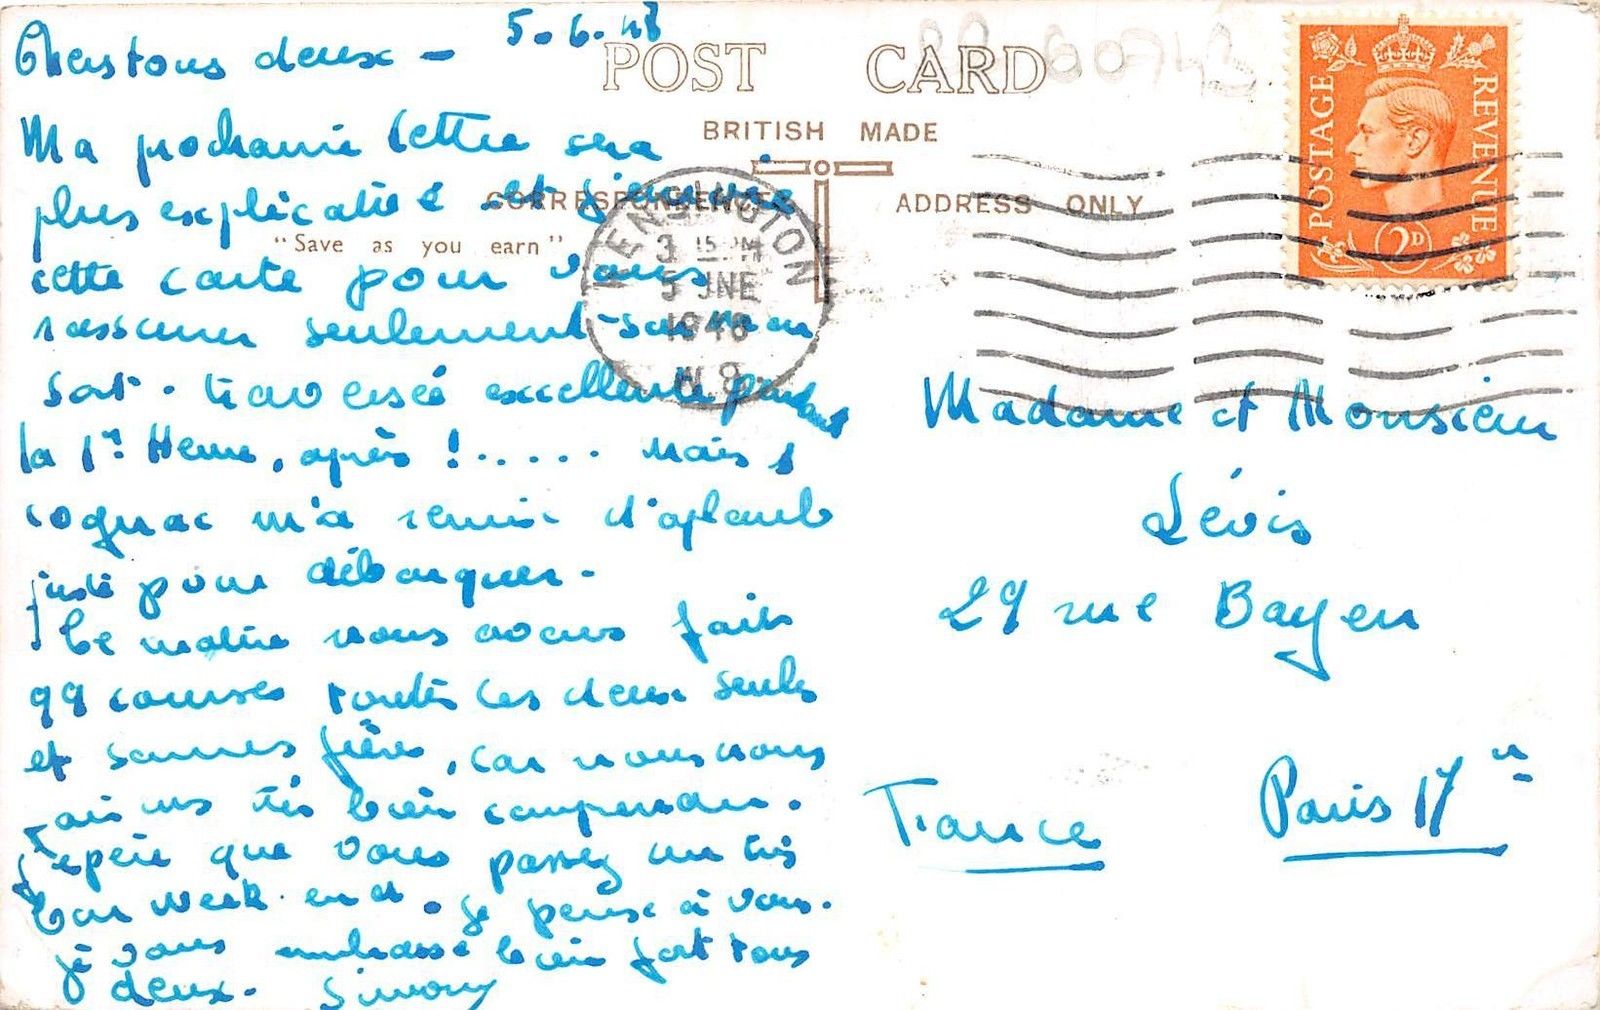 5.6.48
Chers tous deux -
Ma prochaine lettre sera
plus explicative et j'envoie
cette carte pour vous
rassurer seulement sur mon
sort. traversée excellente pendant
la 1re Heure, après !..... mais 1
cognac m'a remis d'aplomb
juste pour débarquer.
Ce matin nous avons fait
qq courses toutes les deux seules
et sommes fières, car nous nous
faisons très bien comprendre.
J'espère que vous passez un très
bon week-end. Je pense à vous.
Je vous embrasse bien fort tous
deux. Simony
POST CARD
BRITISH MADE
CORRESPONDENCE
ADDRESS ONLY
"Save as you earn"
KENSINGTON
3 15 PM
5 JNE
1948
W.8.
POSTAGE
REVENUE
2D
Madame et Monsieur
Lévis
29 rue Bayen
Paris 17e
France